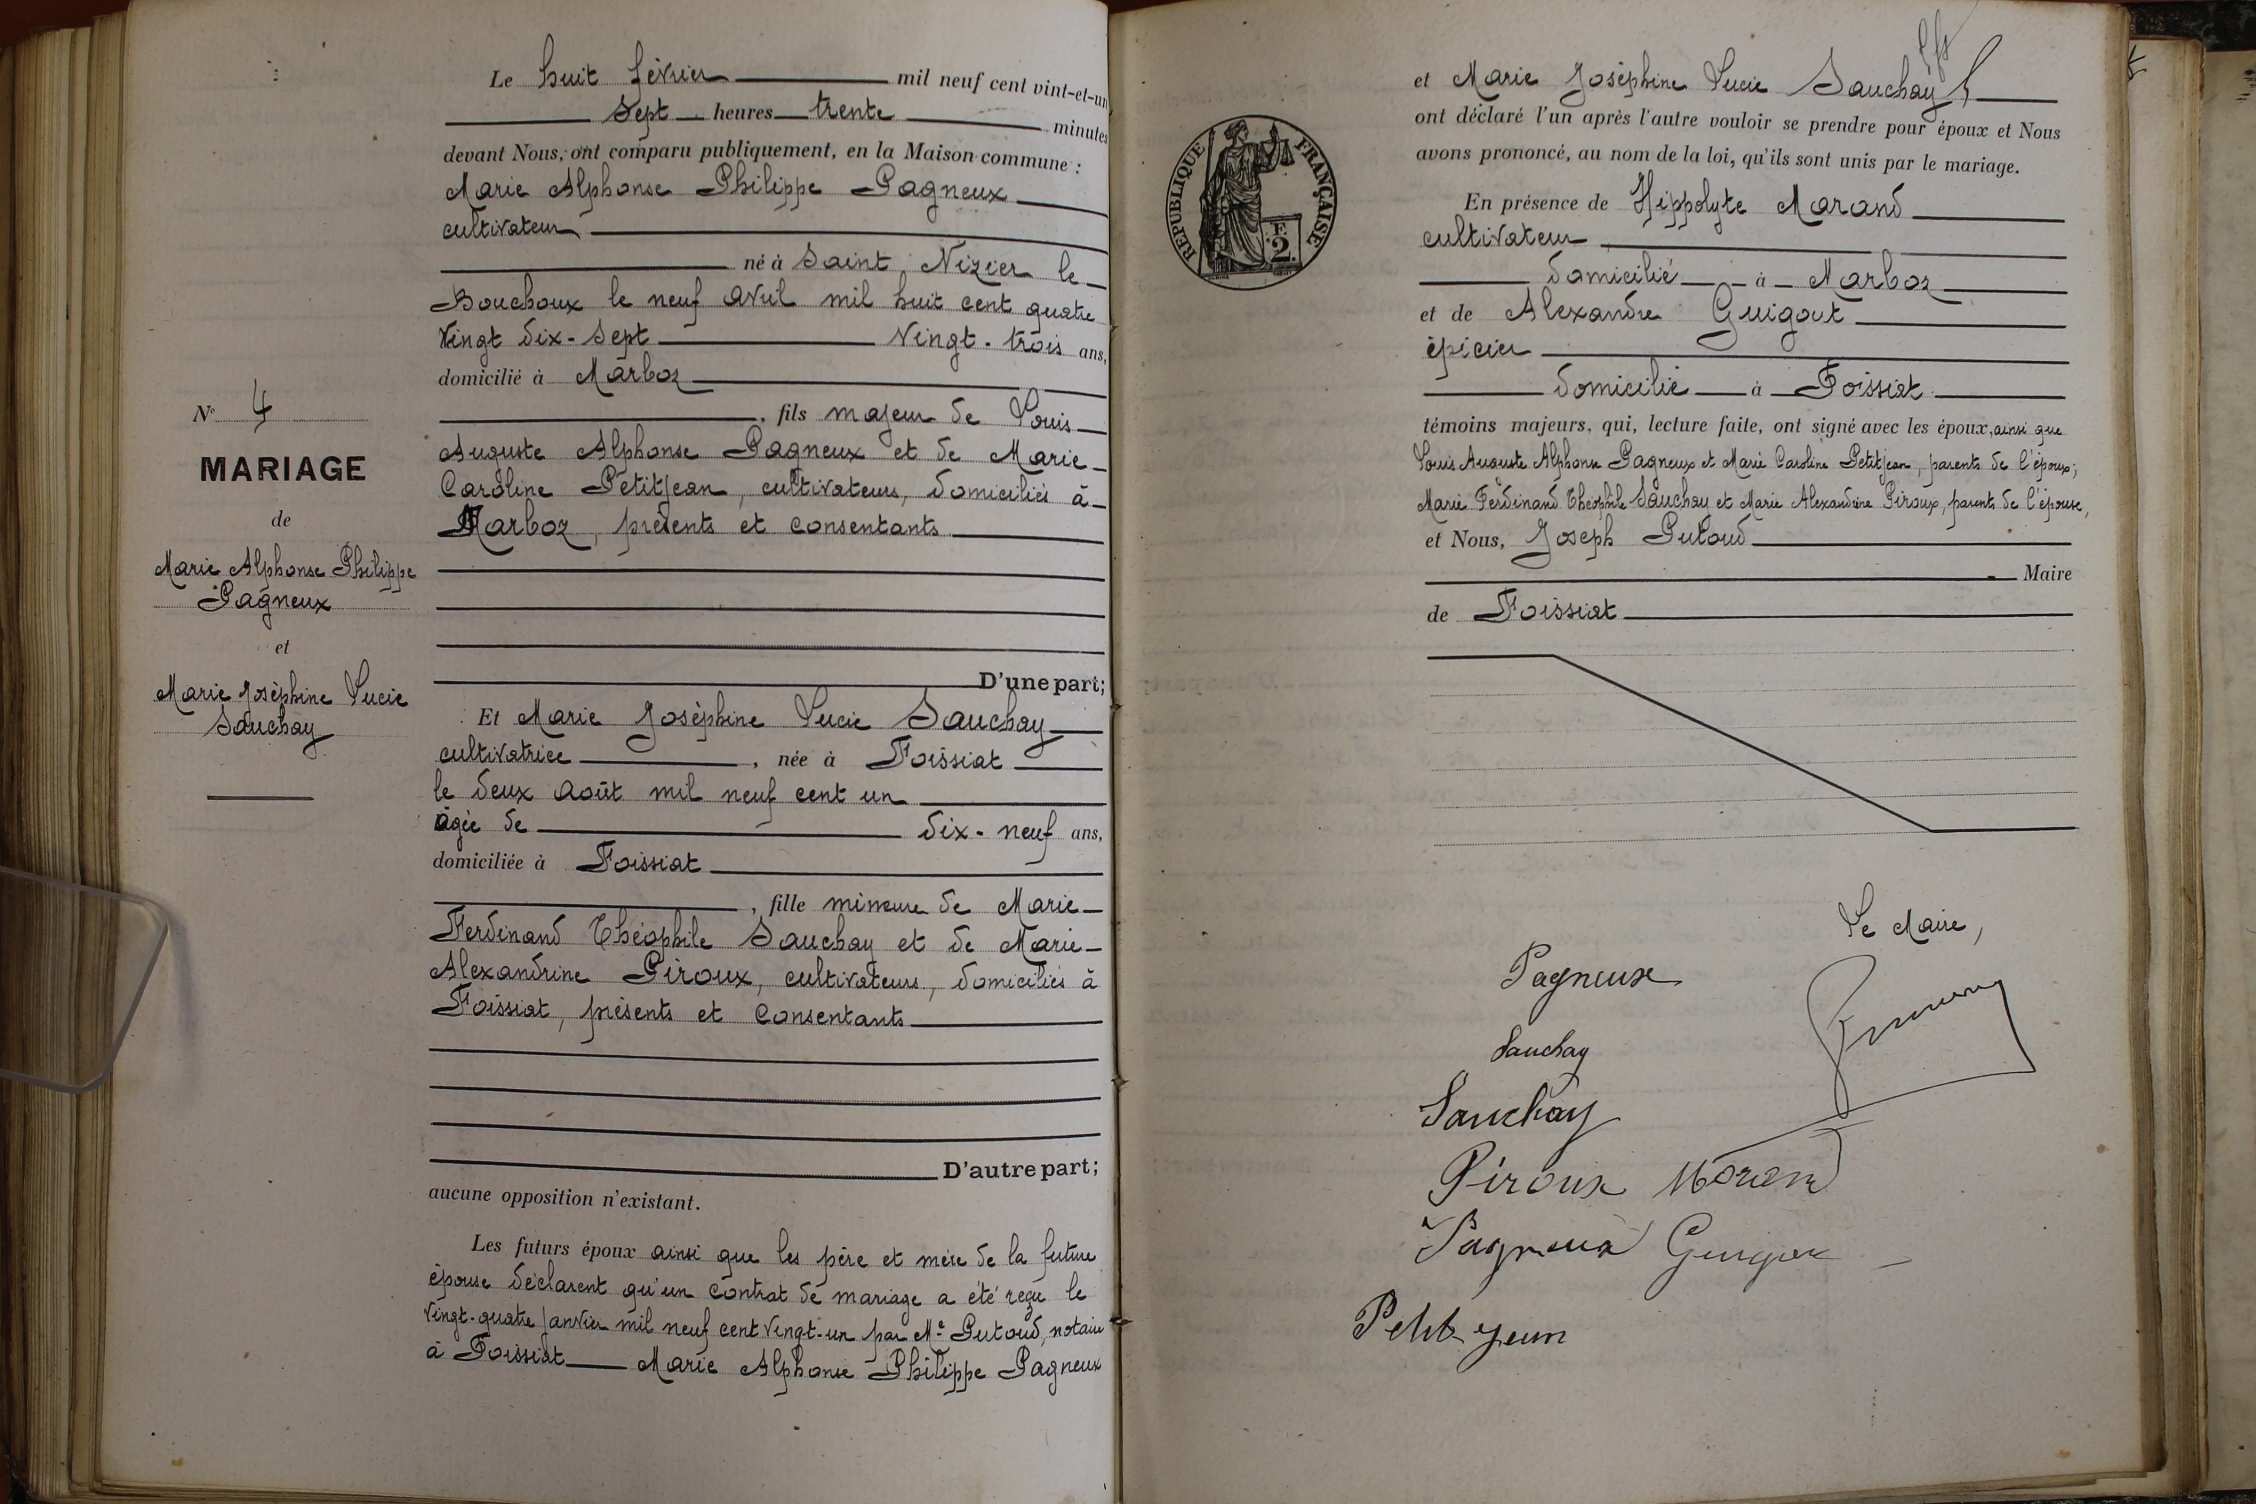 N° 4
MARIAGE
de
Marie Alphonse Philippe
Pagneux
et
Marie Josèphine Lucie
Sauchay
Le huit février mil neuf cent vint-et-un
sept heures trente minutes
devant Nous, ont comparu publiquement, en la Maison commune :
Marie Alphonse Philippe Pagneux
cultivateur
né à Saint Nizier le
Bouchoux le neuf avril mil huit cent quatre
vingt dix-sept vingt-trois ans,
domicilié à Marboz
, fils majeur de Louis
Auguste Alphonse Pagneux et de Marie
Caroline Petitjean, cultivateurs, domiciliés à
Marboz, présents et consentants
D'une part;
Et Marie Josèphine Lucie Sauchay
cultivatrice , née à Foissiat
le deux août mil neuf cent un
âgée de dix-neuf ans,
domiciliée à Foissiat
, fille mineure de Marie
Ferdinand Théophile Sauchay et de Marie
Alexandrine Piroux, cultivateurs, domiciliés à
Foissiat, présents et consentants
D'autre part;
aucune opposition n'existant.
Les futurs époux ainsi que les père et mère de la future
épouse déclarent qu'un contrat de mariage a été reçu le
vingt-quatre janvier mil neuf cent vingt-un par Me Putoud, notaire
à Foissiat Marie Alphonse Philippe Pagneux
RÉPUBLIQUE FRANÇAISE
F.
2.
et Marie Josèphine Lucie Sauchay
ont déclaré l'un après l'autre vouloir se prendre pour époux et Nous
avons prononcé, au nom de la loi, qu'ils sont unis par le mariage.
En présence de Hippolyte Marand
cultivateur
domicilié à Marboz
et de Alexandre Guigout
épicier
domicilié à Foissiat
témoins majeurs, qui, lecture faite, ont signé avec les époux, ainsi que
Louis Auguste Alphonse Pagneux et Marie Caroline Petitjean, parents de l'époux;
Marie Ferdinand Théophile Sauchay et Marie Alexandrine Piroux, parents de l'épouse,
et Nous, Joseph Putoud
Maire
de Foissiat
Le Maire,
Pagneux
Sauchay
Sauchay
Piroux Moran
Pagneux
Petitjean